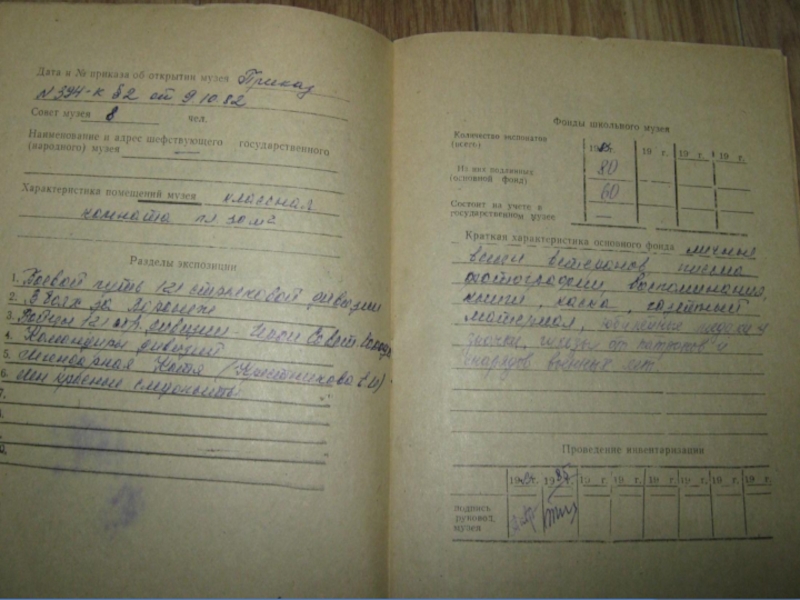 Дата и № приказа об открытии музея Приказ
№ 394-к §2 от 9.10.82
Совет музея 8 чел.
Наименование и адрес шефствующего государственного
(народного) музея —
Характеристика помещений музея классная
комната пл 30 м²
Разделы экспозиции
1. Боевой путь 121 стрелковой дивизии
2. В боях за Воронеж
3. Воины 121 стр. дивизии Герои Совет. Союза
4. Командиры дивизий
5. Легендарная Катя
6. красные следопыты
7.
Фонды школьного музея
Количество экспонатов
(всего)
19 г. 19 г. 19 г. 19 г.
80
Из них подлинных
(основной фонд)
60
Состоит на учете в
государственном музее
—
Краткая характеристика основного фонда личные
вещи ветеранов, письма
фотографии, воспоминания,
книги, каска, газетный
материал, юбилейные медали и
значки, гильзы от патронов и
снарядов военных лет.
Проведение инвентаризации
19 г. 1985 г. 19 г. 19 г. 19 г. 19 г. 19 г. 19 г.
подпись
руковод.
музея